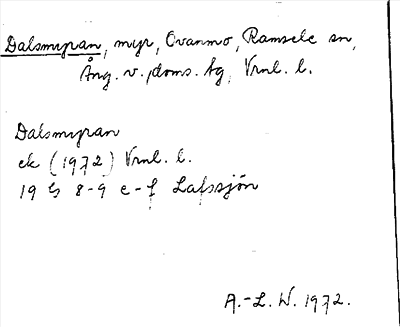 Dalsmyran, myr, Ovanmo, Ramsele sn,
Ång. v. doms. tg, Vrnl. l.
Dalsmyran
ek (1972) Vrnl. l.
19 G 8-9 e-f Lafssjön
A.-L. W. 1972.